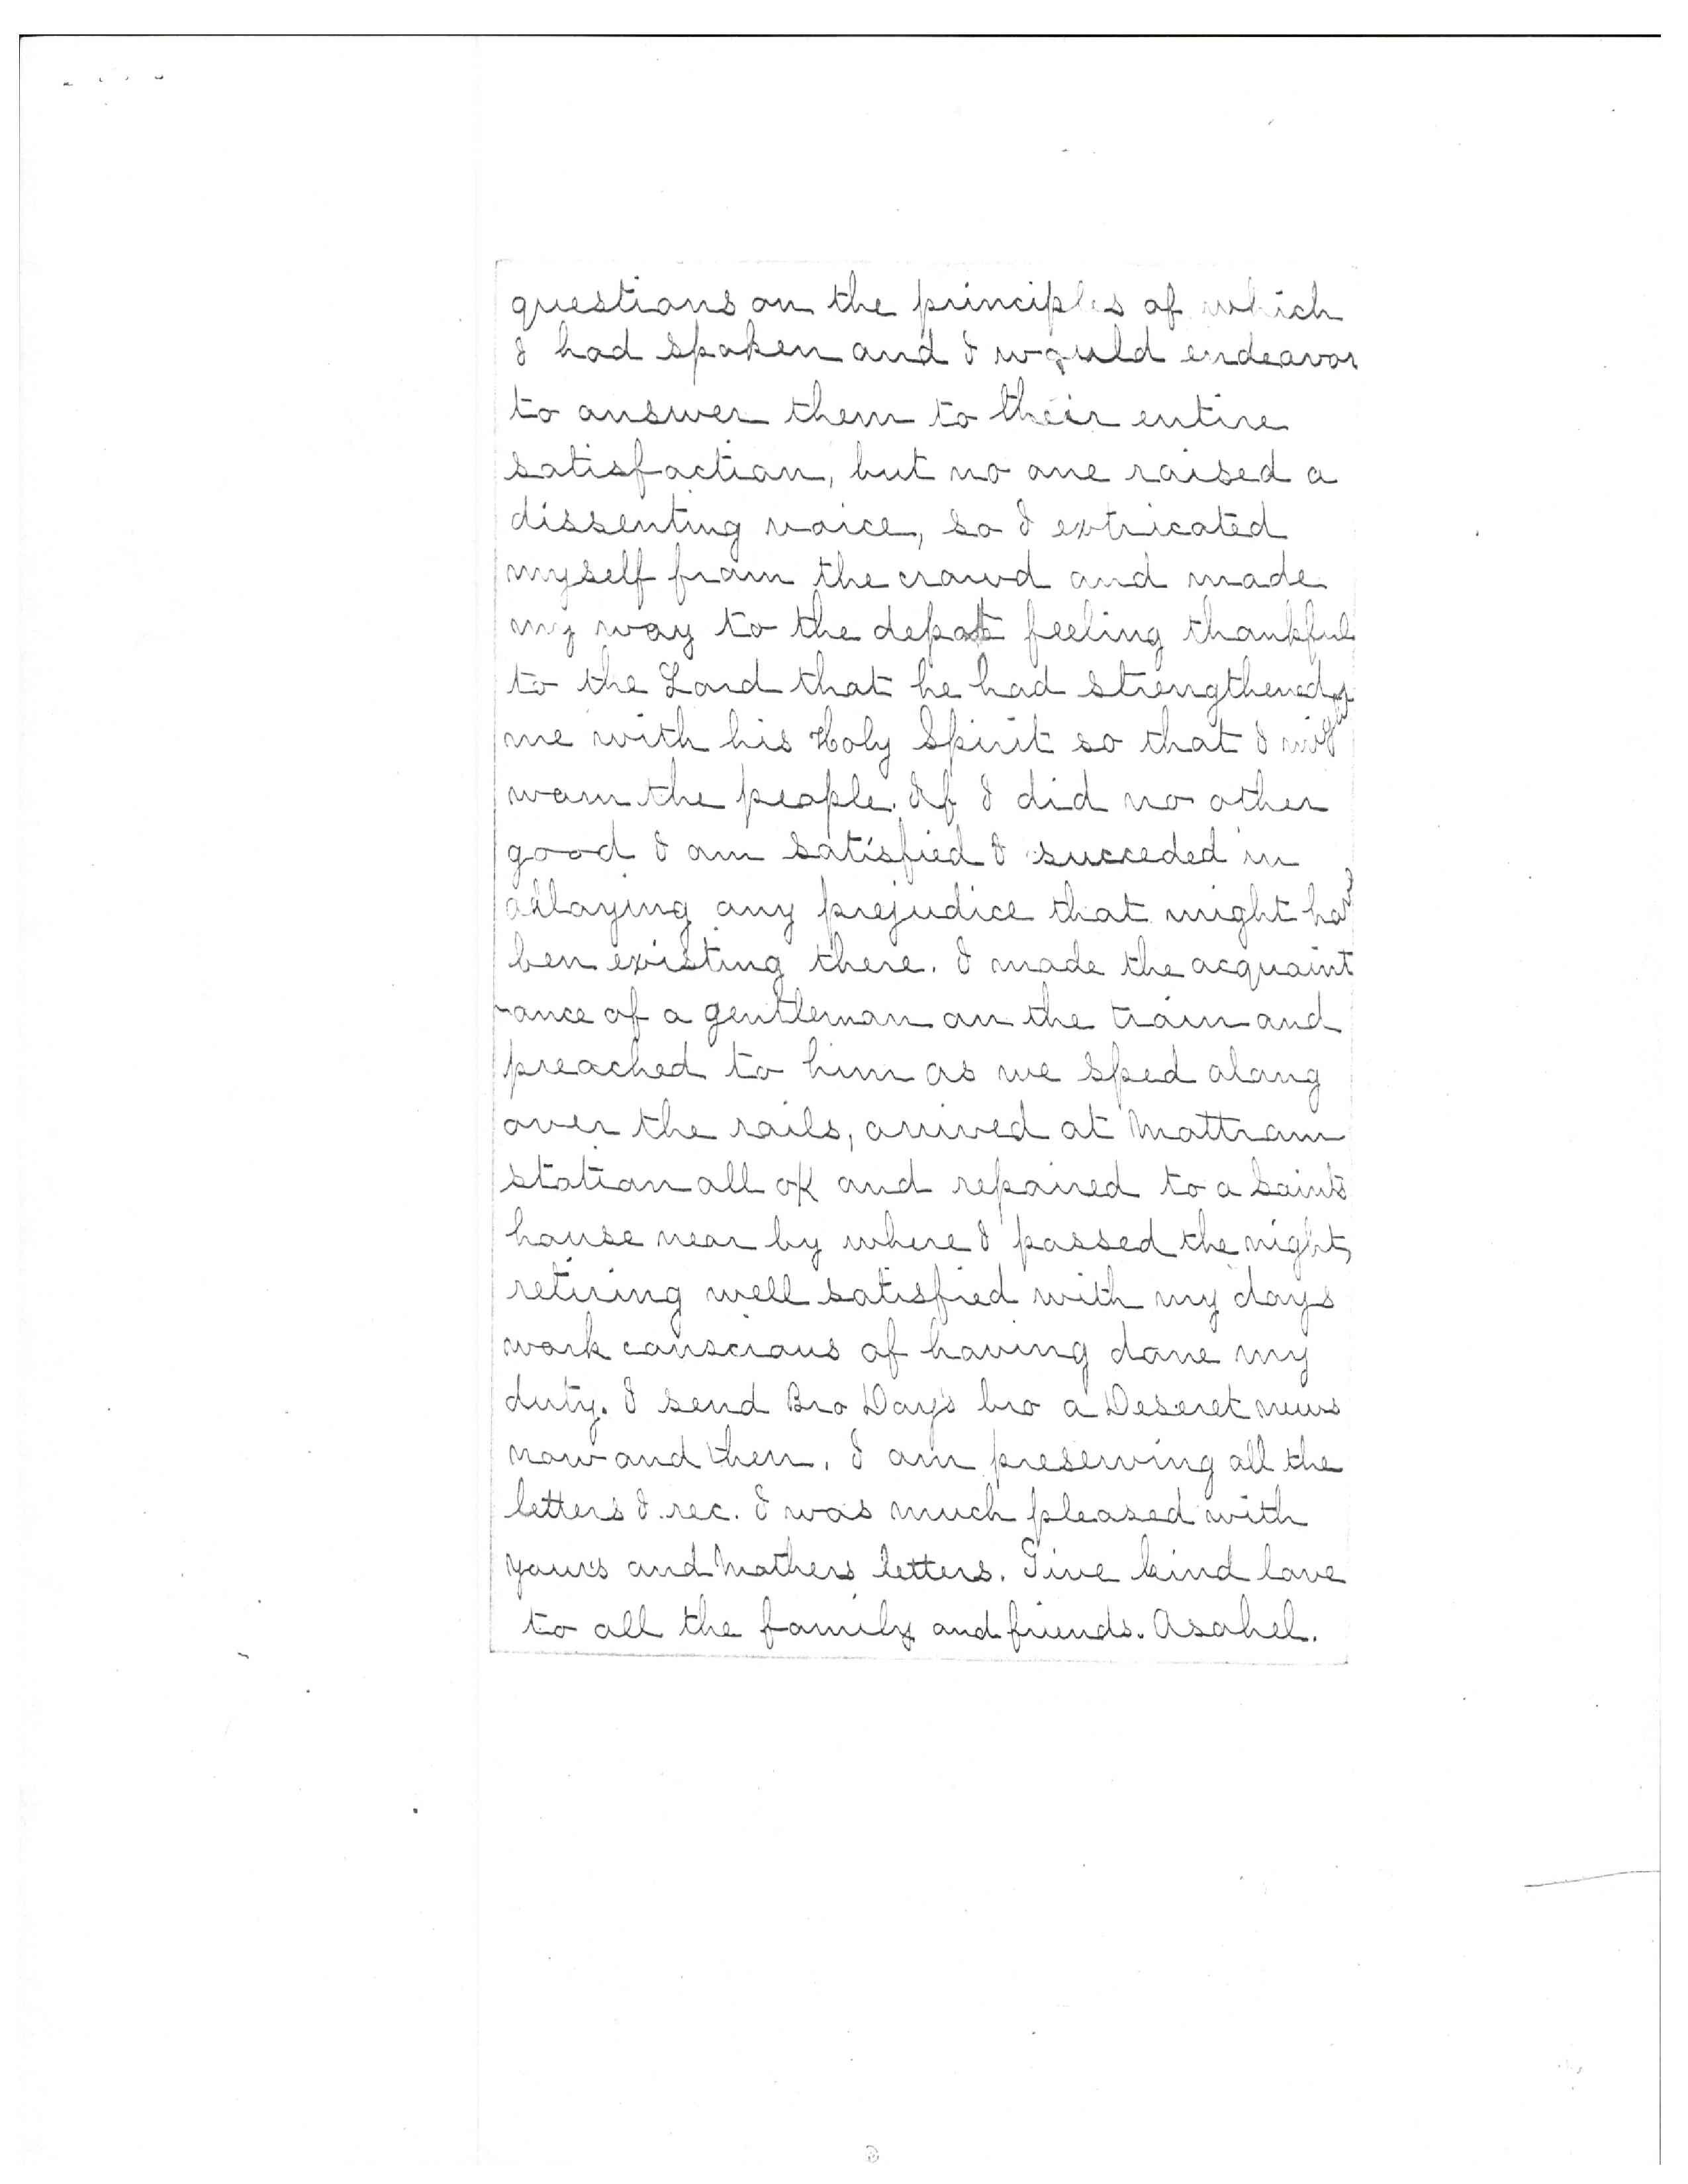 questions on the principles of which
I had spoken and I would endeavor
to answer them to their entire
satisfaction, but no one raised a
dissenting voice, so I extricated
myself from the crowd and made
my way to the depot feeling thankful
to the Lord that he had strengthened
me with his Holy Spirit so that I might
warn the people. If I did no other
good I am satisfied I succeded in
allaying any prejudice that might have
ben existing there. I made the acquaint
-ance of a gentleman on the train and
preached to him as we sped along
over the rails, arrived at Mottram
station all oK and repaired to a Saints
house near by where I passed the night,
retiring well satisfied with my days
work conscious of having done my
duty. I send Bro Day's bro a Deseret news
now and then. I am preserving all the
letters I rec. I was much pleased with
yours and Mothers letters. Give kind love
to all the family and friends. Asahel.